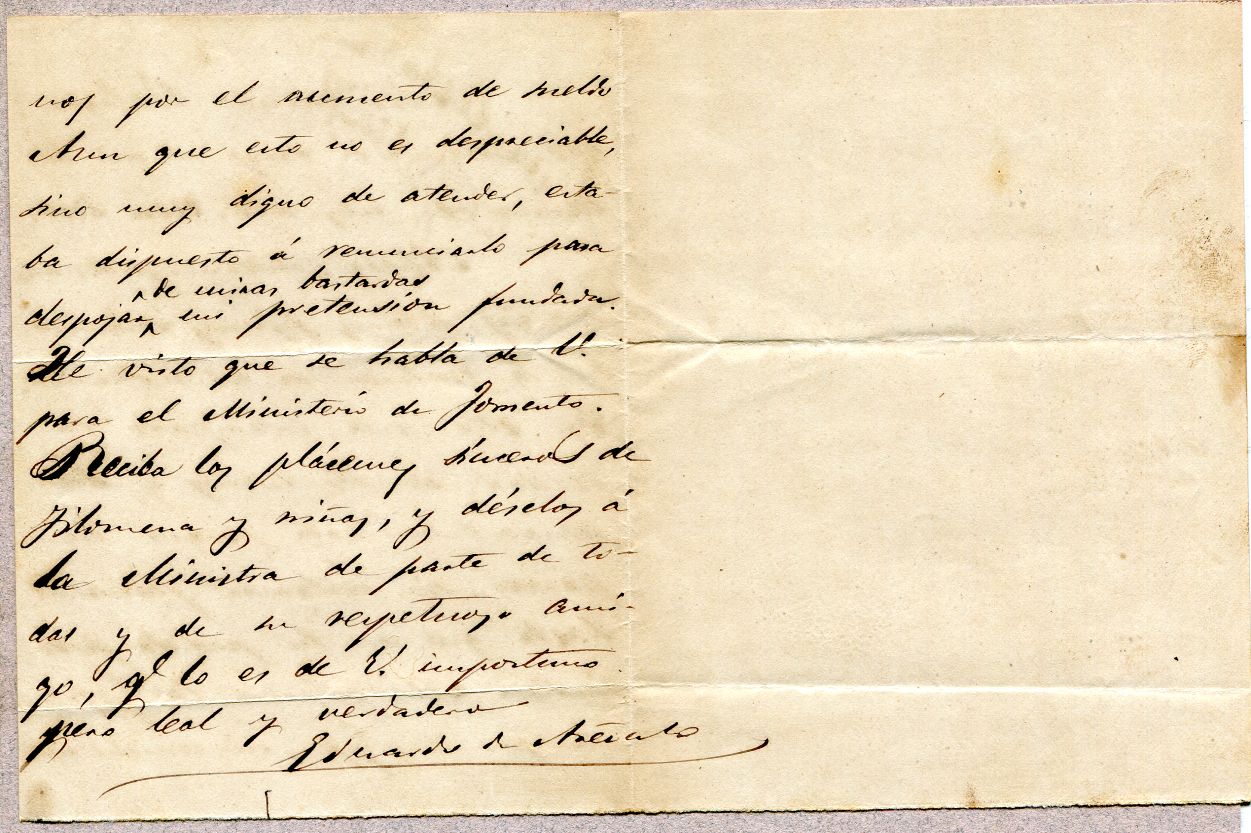 nos por el aumento de sueldo
Aun que esto no es despreciable,
sino muy digno de atender, esta-
ba dispuesto á renunciarlo para
de miras bastardas
despojar mi pretensión fundada.
He visto que se habla de V.
para el Ministerio de Fomento.
Reciba los plácemes sinceros de
Filomena y niñas, y déselos á
la Ministra de parte de to-
das y de su respetuoso ami-
go, qe lo es de V. importuno
pero leal y verdadero
Eduardo de